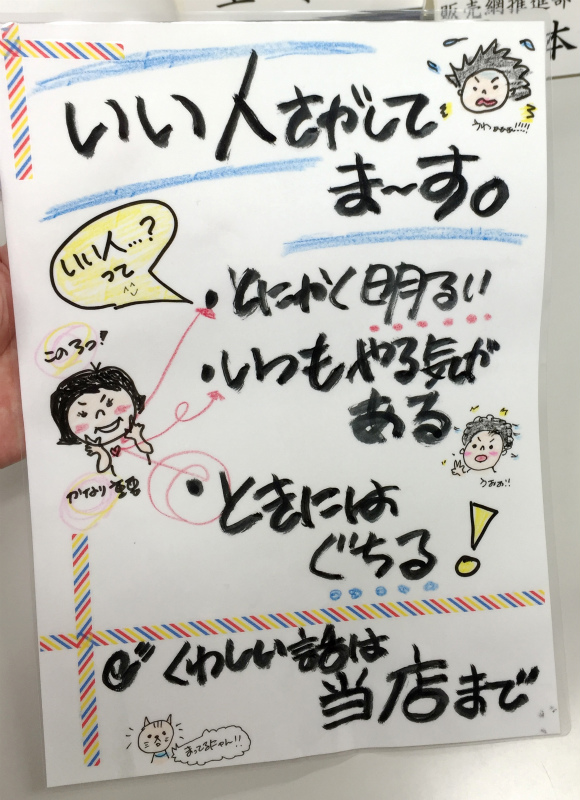 販売網推進部
本
いい人さがして
ま〜す。
うわぁぁぁ!!!!!
いい人…?
って
^^
・とにかく明るい
この3つ!
・いつもやる気が
ある
うおぉ!!
かなり重要
・ときには
ぐちる!
くわしい話は
当店まで
まってるにゃん!!